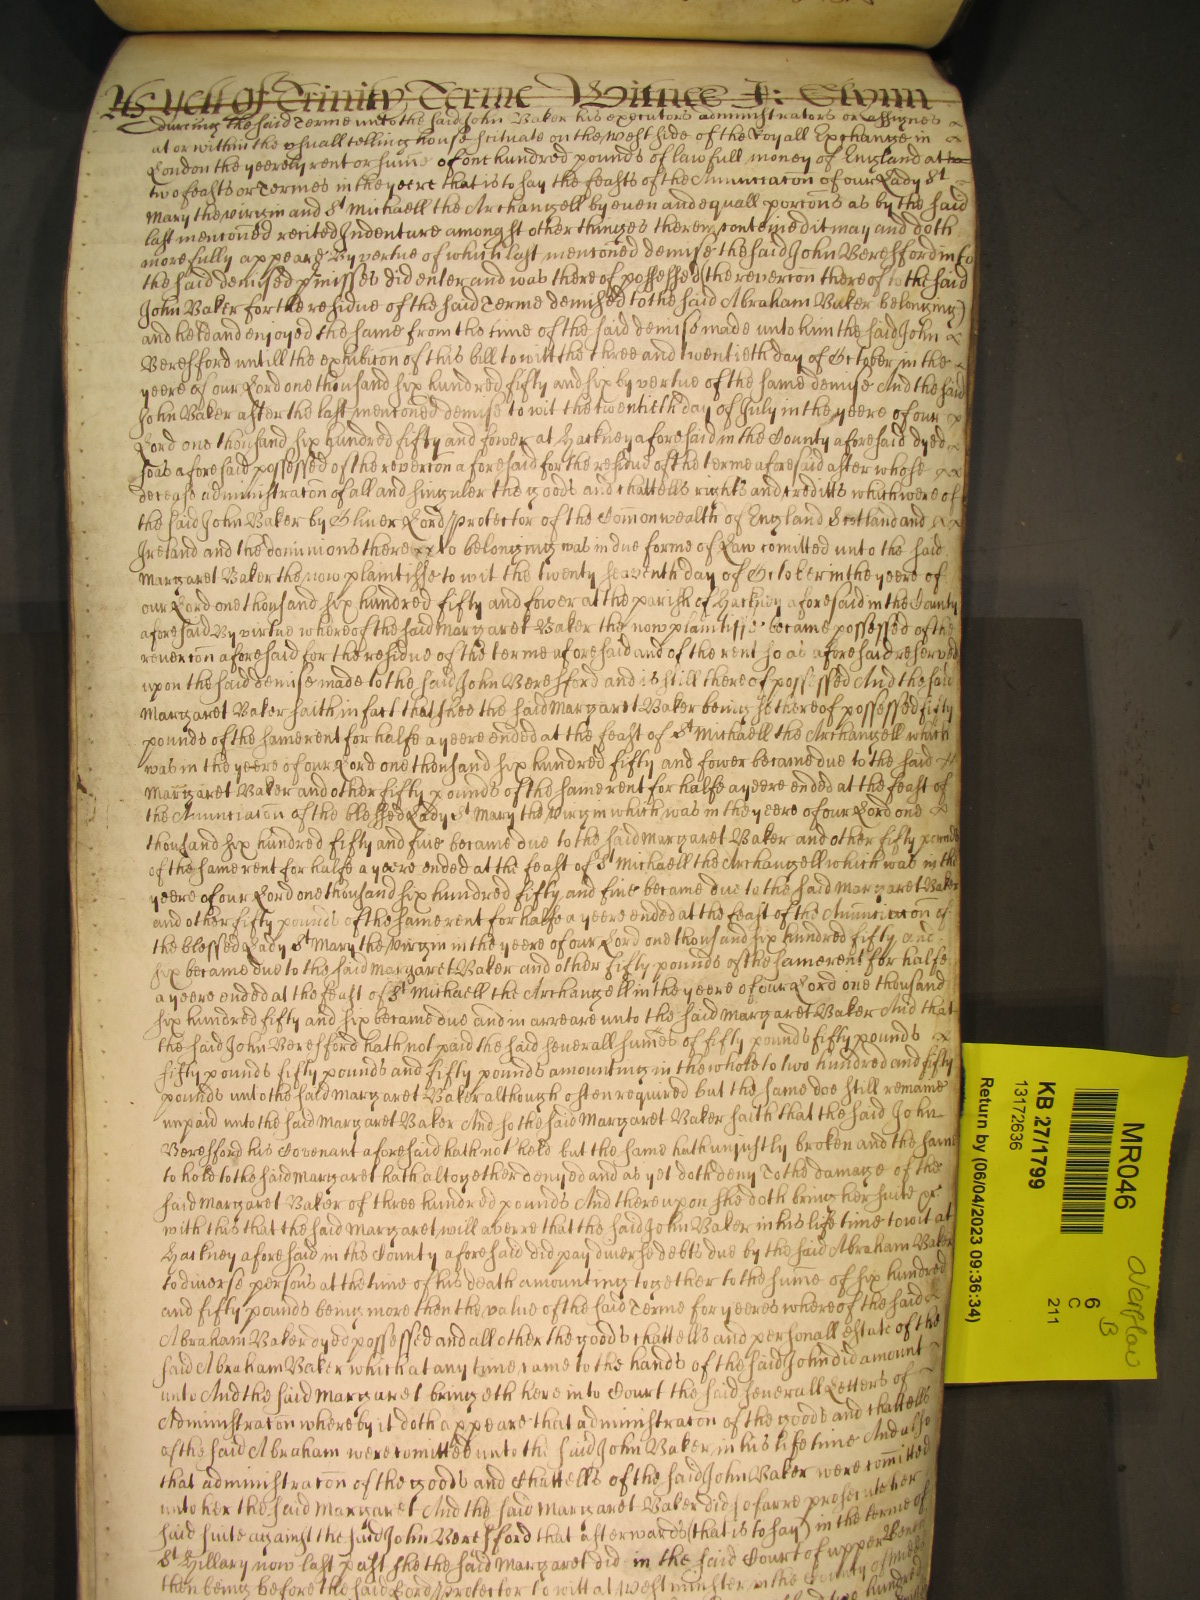 As yett of Trinity Terme Witnes J: Glynn
during the said Terme unto the said John Baker his executors administrators or assignes
at or within the usuall telling house scituate on the west side of the Royall Exchange in
London the yeerely rent or summe of one hundred pounds of lawfull money of England at
two feasts or Termes in the yeere that is to say the feasts of the Annunciacon of our Lady St
Mary the virgin and St Michaell the Archangell by even and equall porcons as by the said
last mentoned recited Indenture amongst other thinges therein conteined it may and doth
more fully appeare By vertue of which last mentoned demise the said John Beresford into
the said demised pmisses did enter and was thereof possessed (the revercon thereof to the said
John Baker for the residue of the said Terme demised to the said Abraham Baker belonging)
and held and enjoyed the same from the time of the said demise made unto him the said John
Beresford untill the exhibicon of this bill to witt the three and twentieth day of October in the
yeere of our Lord one thousand six hundred fifty and six by vertue of the same demise And the said
John Baker after the last mentoned demise to wit the twentieth day of July in the yeere of our
Lord one thousand six hundred fifty and fower at Hackney aforesaid in the County aforesaid dyed
soe as aforesaid possessed of the revercon aforesaid for the residue of the terme aforesaid after whose
decease administracon of all and singuler the goods and chattells rights and creditts which were of
the said John Baker by Oliver Lord protector of the Comonwealth of England Scotland and
Ireland and the dominions there to belonging was in due forme of Law comitted unto the said
Margaret Baker the now plaintiffe to wit the twenty seaventh day of October in the yeere of
our Lord one thousand six hundred fifty and fower at the parish of Hackney aforesaid in the County
aforesaid By virtue whereof the said Margaret Baker the now plaintiffe became possessed of the
revercon aforesaid for the residue of the terme aforesaid and of the rent so as aforesaid reserved
upon the said demise made to the said John Beresford and is still thereof possessed And the said
Margaret Baker saith in fact that shee the said Margaret Baker being so thereof possessed fifty
pounds of the same rent for halfe a yeere ended at the feast of St Michaell the Archangell which
was in the yeere of our Lord one thousand six hundred fifty and fower became due to the said
Margaret Baker and other fifty pounds of the same rent for halfe a yeere ended at the feast of
the Annunciacon of the blessed Lady St Mary the Virgin which was in the yeere of our Lord one
thousand six hundred fifty and five became due to the said Margaret Baker and other fifty pounds
of the same rent for halfe a yeere ended at the feast of St Michaell the Archangell which was in the
yeere of our Lord one thousand six hundred fifty and five became due to the said Margaret Baker
and other fifty pounds of the same rent for halfe a yeere ended at the feast of the Annunciacon of
the blessed Lady St Mary the Virgin in the yeere of our Lord one thousand six hundred fifty and
six became due to the said Margaret Baker and other fifty pounds of the same rent for halfe
a yeere ended at the feast of St Michaell the Archangell in the yeere of our Lord one thousand
six hundred fifty and six became due and in arreare unto the said Margaret Baker And that
the said John Beresford hath not paid the said severall summes of fifty pounds fifty pounds
fifty pounds fifty pounds and fifty pounds amounting in the whole to two hundred and fifty
pounds unto the said Margaret Baker although often required but the same doe still remaine
unpaid unto the said Margaret Baker And so the said Margaret Baker saith that the said John
Beresford his Covenant aforesaid hath not held but the same hath unjustly broken and the same
to hold to the said Margaret hath altogether denyed and as yet doth deny To the damage of the
said Margaret Baker of three hundred pounds And thereupon she doth bring her suite
with this that the said Margaret will averre that the said John Baker in his life time to wit at
Hackney aforesaid in the County aforesaid did pay diverse debts due by the said Abraham Baker
to diverse persons at the time of his death amounting together to the summe of six hundred
and fifty pounds being more then the value of the said Terme for yeeres whereof the said
Abraham Baker dyed possessed and all other the goods chattells and personall estate of the
said Abraham Baker which at any time came to the hands of the said John did amount
unto And the said Margaret bringeth here into Court the said severall Letters of
Administracon whereby it doth appeare that administracon of the goods and chattells
of the said Abraham were comitted unto the said John Baker in his life time And also
that administracon of the goods and Chattells of the said John Baker were comitted
unto her the said Margaret And the said Margaret Baker did so farre prosecute her
said suite against the said John Beresford that afterwards (that is to say) in the terme of
St Hillary now last past she the said Margaret did in the said Court of upper Bench
then being before the said Lord protector to witt at Westminster in the County of
MR046
KB 27/1799
13172636
Return by (06/04/2023 09:36:34)
6
C
211
Overflow
B